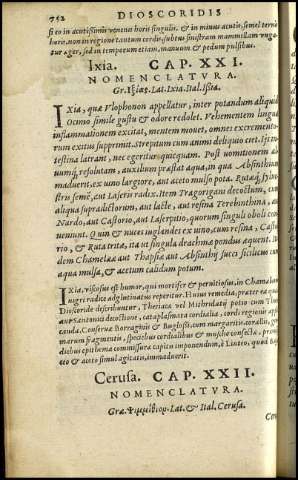 752 DIOSCORIDIS
si eo in acutissimis venenat horis singulis, & in minus acutis, semel terné
hore, non in regione tantum cordis, subter sinistram mammillam vngu
tur æger, sed in temporum etiam, manuum & pedum pulsibus.
Ixia. CAP. XXI.
NOMENCLATVRA.
Gr. Lat. Ixia. Ital. Issia.
IXia, quæ Vlophonon appellatur, inter potandum aliquid
Ocimo simile gustu & odore redolet. Vehementem linguæ
inflammationem excitat, mentem mouet, omnes excremento-
rum exitus supprimit. strepitum cum animi deliquio ciet.
testina latrant, nec egeritur quicquam. Post vomitionem
resolutam, auxilium præstat aqua, in qua Absinthium
maduerit, ex vino largiore, aut aceto mulso pota. Rutæq;
strï semē, aut Laseris radix. Item Tragorigani decoctum, cum
aliqua supradictorum, aut lacte, aut resina Terebinthina, aut
Nardo, aut Castorio, aut Laserpitio, quorum singuli oboli con
ueniunt. Quin & nuces iuglandes ex vino, cum resina, Casto
rio, & Ruta tritæ, ita vt singula drachma pondus æquent.
dem Chamelææ aut Thapsiæ aut Absinthij succi siciliscus cum
aqua mulsa, & acetum calidum potum.
IXia, viscosus est humor, qui mortifer & perutiosus, in Chamæleon
nigri radice adglutinatus repertitur. Huius remedia, præter ea quæ
Dioscoride describuntur, Theriaca vel Mithridatij potio cum
aut Santonici decoctione, cataplasmata cordialia, cordi regionis
cauda. Conseruæ Borraghinis & Buglossi, cum margaritis, corallis,
marum fragmentis, speciebus cordialibus & muscho confectæ,
diebus epithema commissuræ capitis imponendum, è Linteo, quod
to & aceto simul agitatis, immaduerit.
Cerusa. CAP. XXII.
NOMENCLATVRA.
Græ. Lat. & Ital. Cerusa.